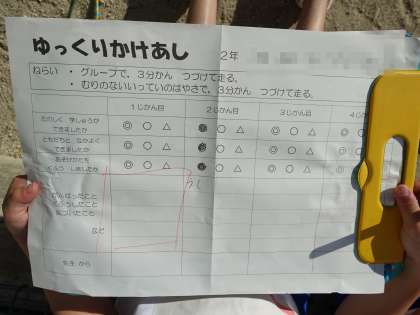 ゆっくりかけあし 2年
ねらい ・ グループで、3分かん つづけて走る。
・ むりのないいっていのはやさで、3分かん つづけて走る。
1じかん目 2じかん目 3じかん目 4じかん目
たのしく 学しゅうが
できましたか
◎ ○ △ ◎ ○ △ ◎ ○ △ ◎ ○
ともだちと なかよく
できましたか
◎ ○ △ ○ △ ◎ ○ △ ◎ ○
しましたか
◎ ○ △ ○ △ ◎ ○ △ ◎ ○
がんばったこと
くふうしたこと
気づいたこと
など
先生 から